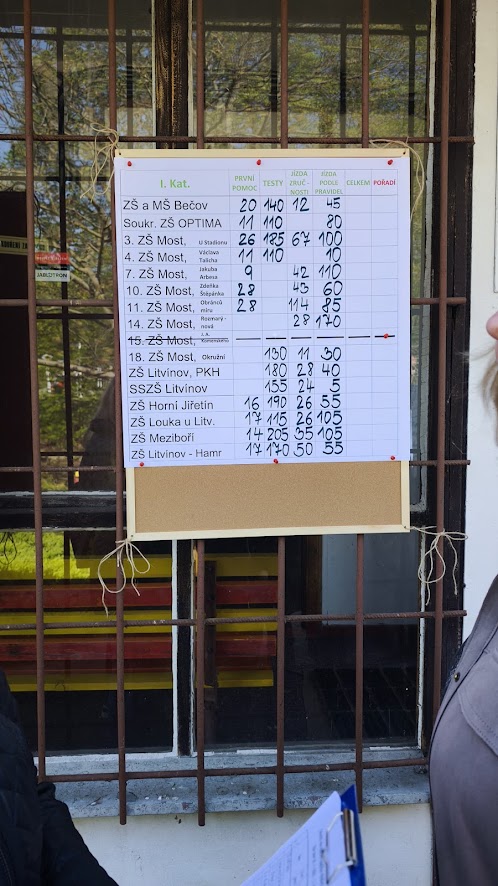 I. Kat. PRVNÍ POMOC TESTY JÍZDA ZRUČ - NOSTI JÍZDA PODLE PRAVIDEL CELKEM POŘADÍ
ZŠ a MŠ Bečov 20 140 12 45
Soukr. ZŠ OPTIMA 11 110 80
3. ZŠ Most, U Stadionu 26 185 67 100
4. ZŠ Most, Václava Talicha 11 110 10
7. ZŠ Most, Jakuba Arbesa 9 42 110
10. ZŠ Most, Zdeňka Štěpánka 28 43 60
11. ZŠ Most, Obránců míru 28 114 85
14. ZŠ Most, Rozmarý - nová 28 170
15. ZŠ Most, J.A. Komenského
18. ZŠ Most, Okružní 130 11 30
ZŠ Litvínov, PKH 180 28 40
SSZŠ Litvínov 155 24 5
ZŠ Horní Jiřetín 16 190 26 55
ZŠ Louka u Litv. 17 115 26 105
ZŠ Meziboří 14 205 35 105
ZŠ Litvínov - Hamr 17 170 50 55
JABLOTRON